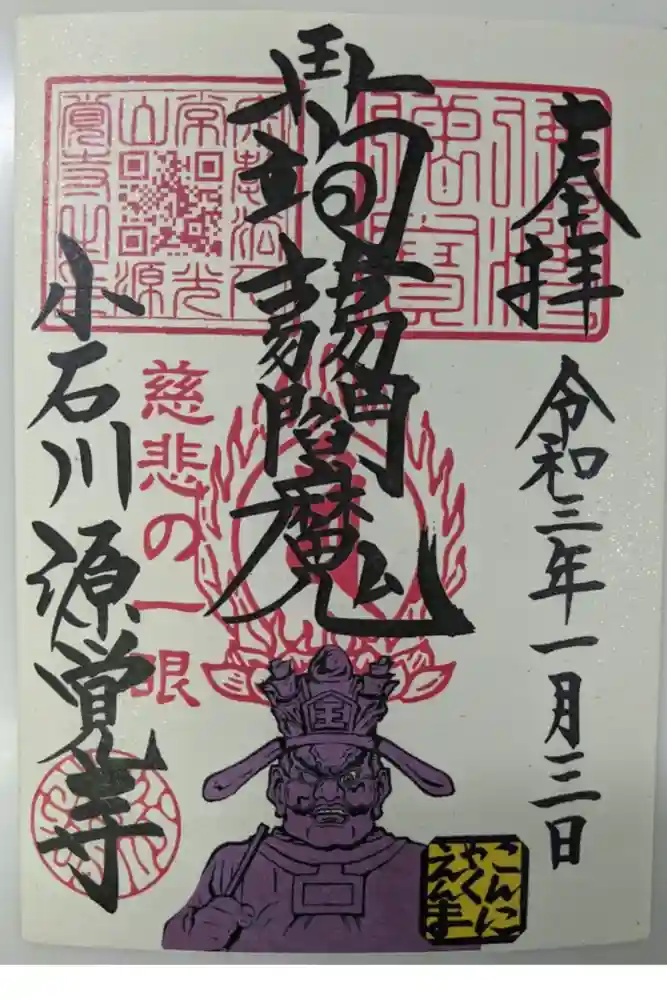 奉拝
令和三年一月三日
蒟蒻閻魔
慈悲の一眼
小石川源覚寺
王
こんに
ゃく
えんま